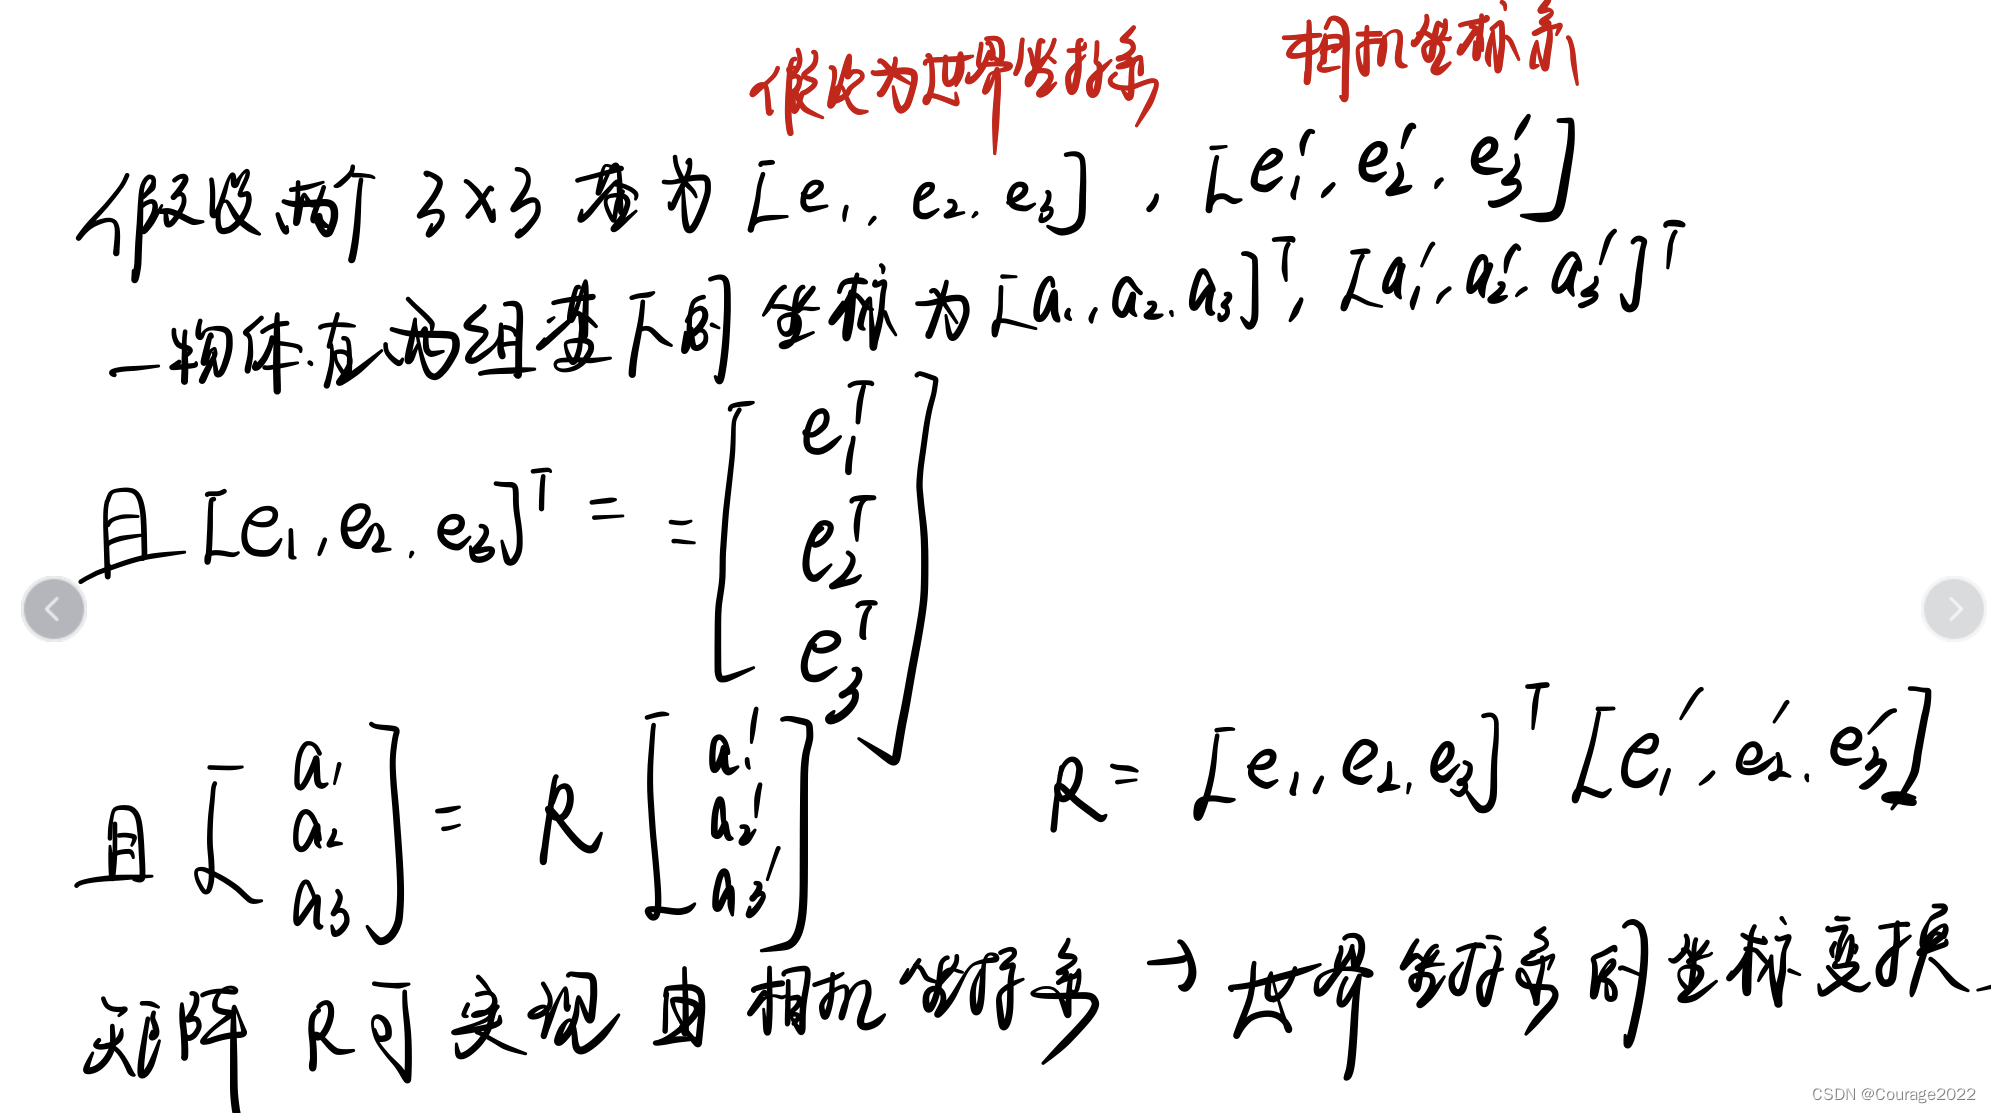 假设为世界坐标系 相机坐标系
假设两个 3×3 基为 [e₁, e₂, e₃], [e₁′, e₂′, e₃′]
一物体在两组基下的坐标为 [a₁, a₂, a₃]ᵀ, [a₁′, a₂′, a₃′]ᵀ
且 [e₁, e₂, e₃]ᵀ = = [e₁ᵀ
e₂ᵀ
e₃ᵀ]
且 [a₁
a₂
a₃] = R [a₁′
a₂′
a₃′]
R = [e₁, e₂, e₃]ᵀ [e₁′, e₂′, e₃′]
矩阵 R可实现由相机坐标系 → 世界坐标系的坐标变换.
CSDN @Courage2022